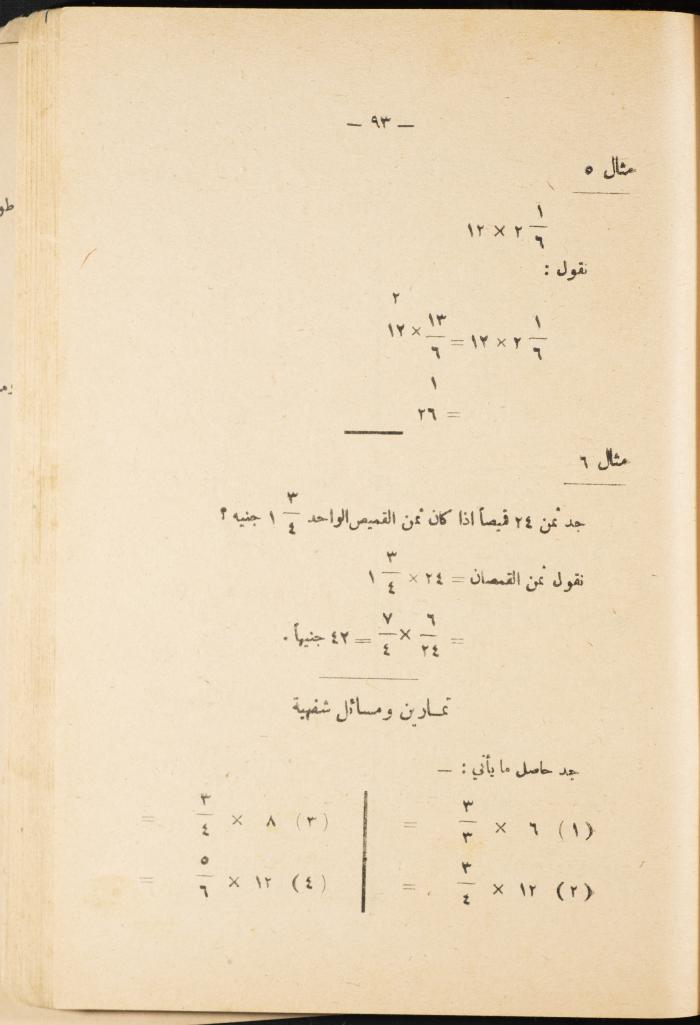 — ٩٣ —
مثال ٥
١
٢ — × ١٢
٦
نقول :
٢
١ ١٣
٢ — × ١٢ = — × ١٢
٦ ٦
١
= ٢٦
مثال ٦
جد ثمن ٢٤ قميصاً اذا كان ثمن القميص الواحد ٣/٤ ١ جنيه ؟
نقول ثمن القمصان = ٢٤ × ٣/٤ ١
٦ ٧
= — × — = ٤٢ جنيهاً .
٢٤ ٤
تمارين ومسائل شفهية
جد حاصل ما يأتي : —
(١) ٦ × ٣/٣ =
(٢) ١٢ × ٣/٤ =
(٣) ٨ × ٣/٤ =
(٤) ١٢ × ٥/٦ =